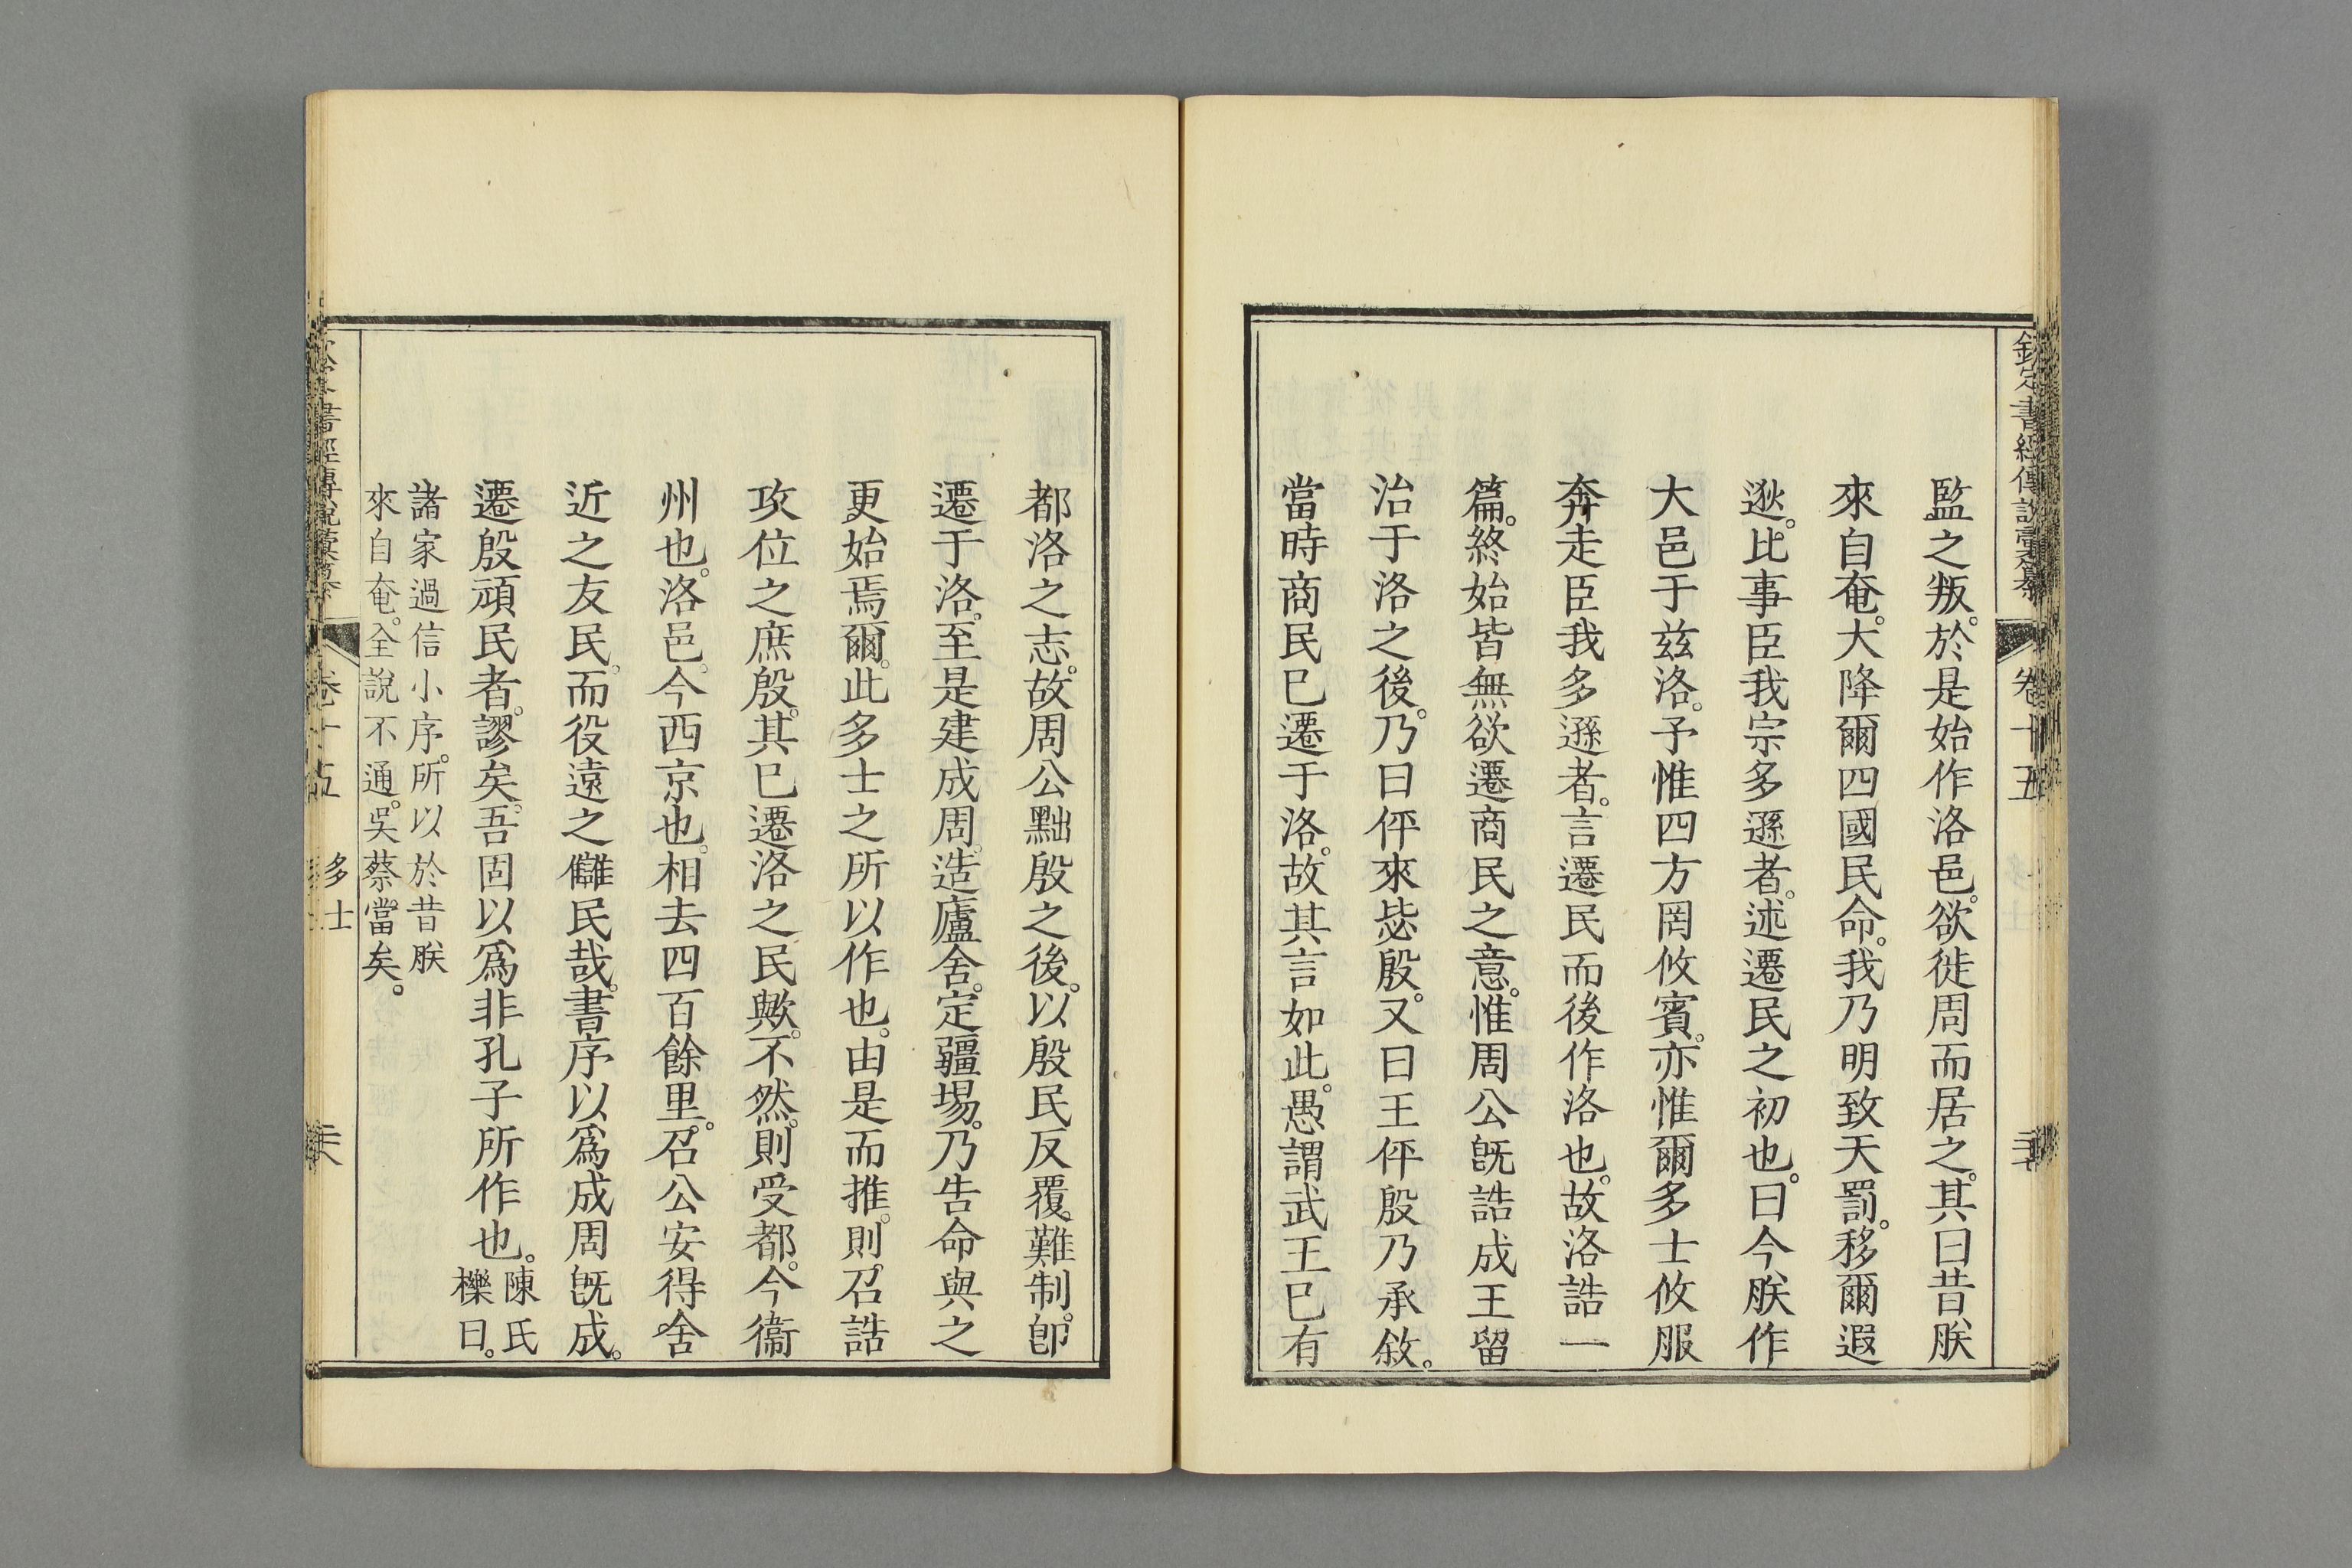 欽定書經傳說彙纂 卷十五
監之叛。於是始作洛邑。欲徙周而居之。其曰昔朕
來自奄。大降爾四國民命。我乃明致天罰。移爾遐
逖。比事臣我宗多遜者。述遷民之初也。曰今朕作
大邑于茲洛。予惟四方罔攸賓。亦惟爾多士攸服
奔走臣我多遜者。言遷民而後作洛也。故洛誥一
篇。終始皆無欲遷商民之意。惟周公旣誥成王留
治于洛之後。乃曰伻來毖殷。又曰王伻殷乃承敘。
當時商民已遷于洛。故其言如此。愚謂武王已有
都洛之志。故周公黜殷之後。以殷民反覆難制。卽
遷于洛。至是建成周。造廬舍。定疆埸。乃告命與之
更始焉爾。此多士之所以作也。由是而推。則召誥
攻位之庶殷。其已遷洛之民歟。不然。則受都。今衞
州也。洛邑。今西京也。相去四百餘里。召公安得舍
近之友民。而役遠之讎民哉。書序以爲成周旣成。
遷殷頑民者。謬矣。吾固以爲非孔子所作也。陳氏
櫟曰。
諸家過信小序。所以於昔朕
來自奄。全說不通。吳蔡。當矣。
書經傳說彙纂 卷十五 多士